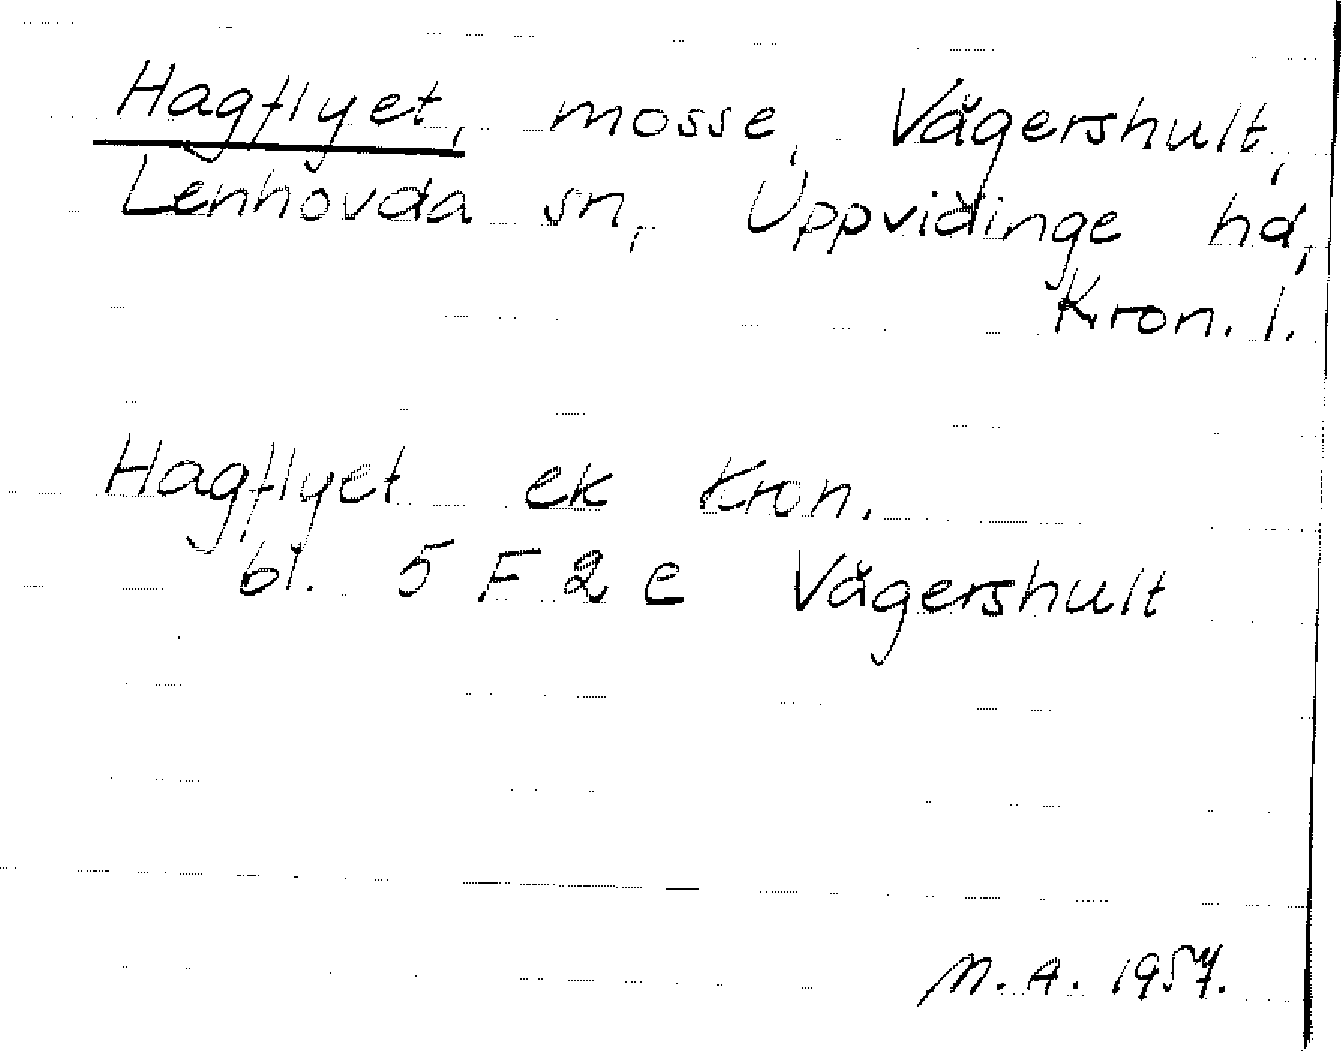 Hagflyet, mosse, Vägershult,
Lenhovda sn, Uppvidinge hd,
Kron. l.
Hagflyet ek Kron.
bl. 5 F 2 e Vägershult
M. A. 1957.